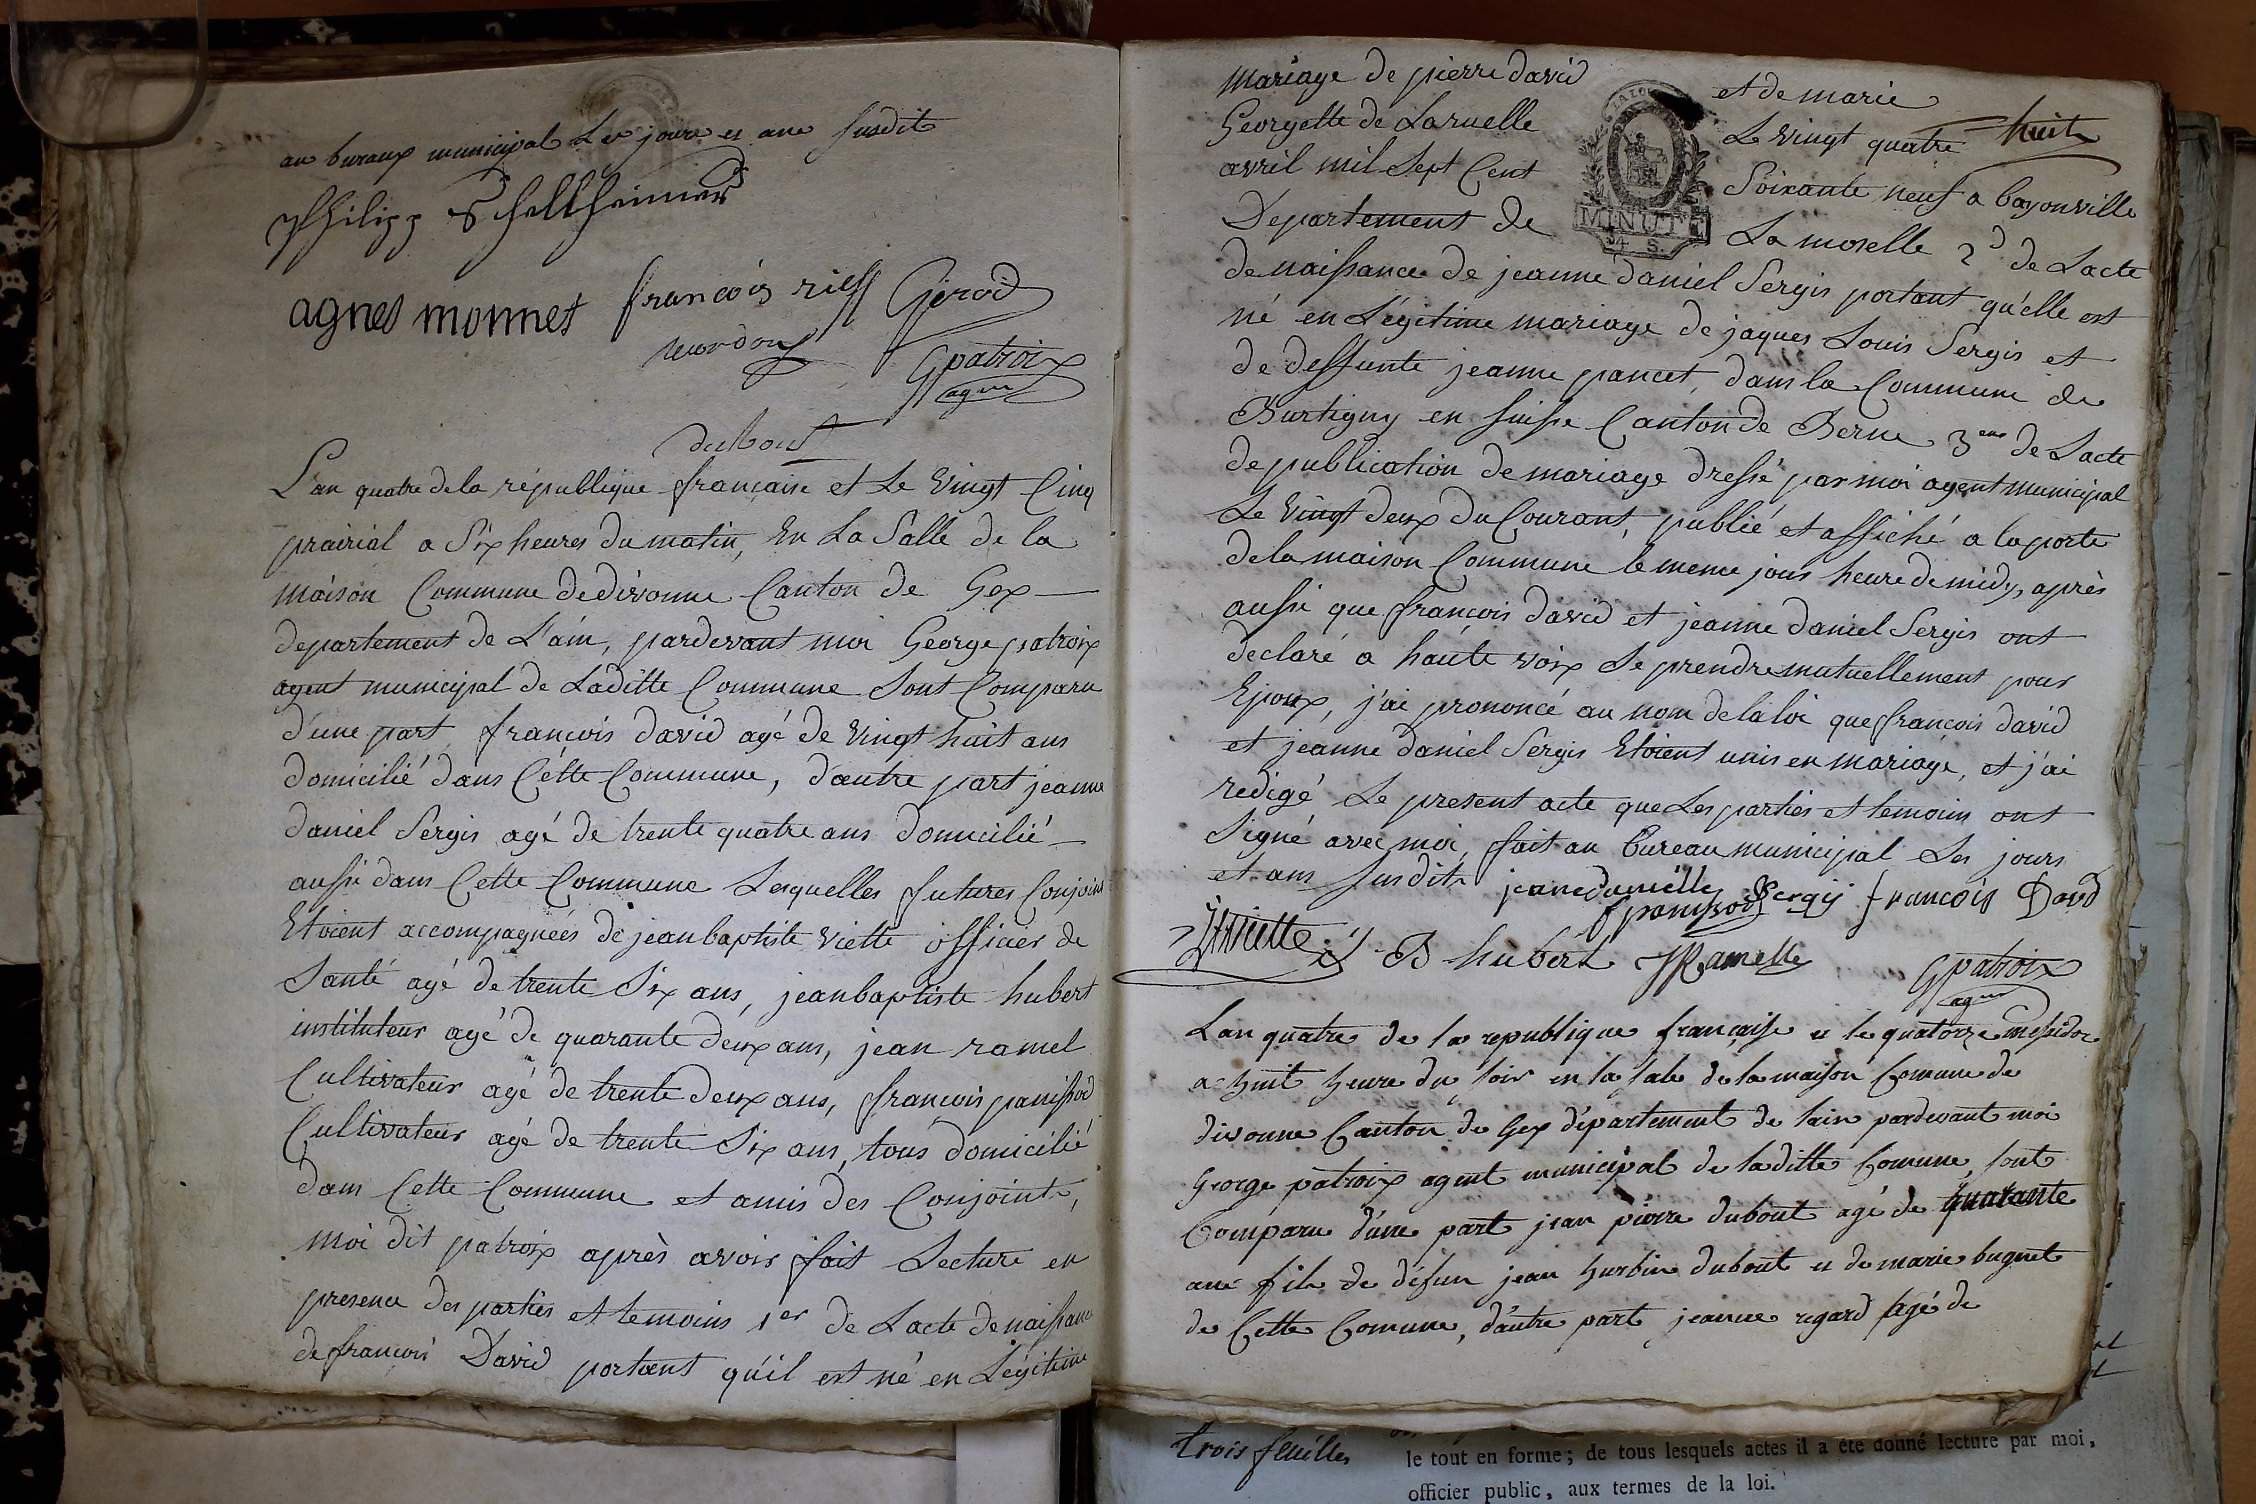 au buraux municipal Les jours es ane susdit
Philipp Schellheimer
agnes monnet françois rieff Girod
Gpatroix
agent
dubout
L'an quatre de la république française et Le Vingt Cinq
prairial a Six heures du matin, En La Salle de la
maison Commune de divonne Canton de Gex
departement de L'ain, pardevant moi George patroix
agent municipal de Laditte Commune Sont Comparu
d'une part françois david agé de Vingt huit ans
domicilié dans Cétte Commune, d'autre part jeanne
daniel Sergis agé de trente quatre ans domicilié
aussi dans Cette Commune Lesquelles futures Conjoins
Etoient accompagnées de jean baptiste viette officier de
Santé agé de trente Six ans, jean baptiste hubert
instituteur agé de quarante deux ans, jean ramel
Cultivateur agé de trente deux ans, françois panissod
Cultivateur agé de trente Six ans, tous domicilié
dans Cette Commune et amis des Conjoints,
moi dit patroix après avoir fait Lecture en
presence des parties et temoins 1er de L'acte de naissance
de francois David portant qu'il est né en Légitime
mariage de pierre david et de marie
Georgette de Laruelle Le vingt quatre huit
avril mil Sept Cent Soixante neuf a bayonville
Departement de La moselle 2d de L'acte
MINUTE
4 S.
de naissance de jeanne daniel Sergis portant qu'elle est
né en Légitime mariage de jaques Louis Sergis et
de deffunte jeanne pancet, dans la Commune de
Burtigny en suisse Canton de Berne 3eme de L'acte
de publication de mariage dressé par moi agent municipal
Le Vingt deux du Courant, publié et affiché a la porte
de la maison Commune le meme jour heure de midy, après
aussi que françois david et jeanne daniel Sergis ont
declaré a haute voix Se prendre mutuellement pour
Epoux, j'ai prononcé au nom de la loi que françois david
et jeanne daniel Sergis Etoient unis en mariage, et j'ai
redigé Le present acte que Les parties et temoins ont
Signé avec moi, fait au bureau municipal Les jours
et ans susdits jeane danielle Sergis francois David
fpanissod
Viette J B hubert JRamelle Gpatroix
agent
Lan quatre de la republique française et le quatorze messidor
a huit heure du soir en la sale de la maison Comune de
divonne Canton de Gex département de lain pardevant moi
George patroix agent municipal de laditte Comune, sont
Comparu d'une part jean pierre dubout agé de quarante
ans fils de défun jean hurbin dubout et de marie bugnet
de Cette Comune, d'autre part jeanne regard agé de
trois feuilles
le tout en forme; de tous lesquels actes il a été donné lecture par moi,
officier public, aux termes de la loi.